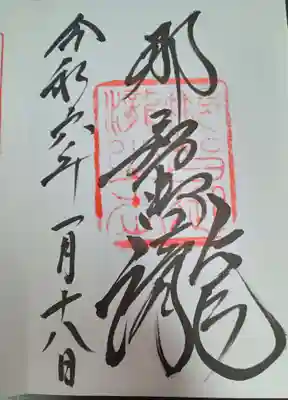 那智御瀧
令和六年一月十八日